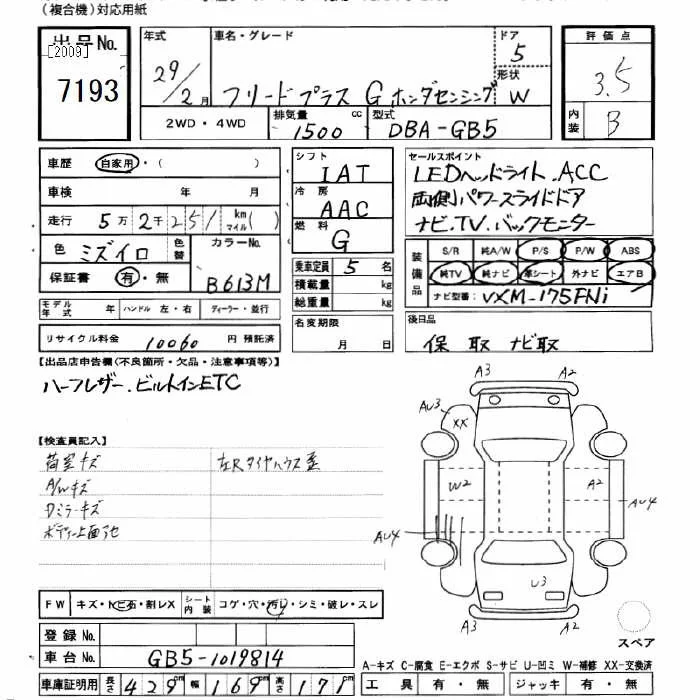 (複合機)対応用紙
出品No. [2009] 7193
年式 29/2月
車名・グレード フリードプラス G ホンダセンシング
ドア 5
形状 W
評価点 3.5
内装 B
2WD・4WD
排気量 1500 cc
型式 DBA-GB5
車歴 自家用・( )
車検 年 月
走行 5万2千251 km マイル( )
色 ミズイロ 色替
カラーNo. B613M
保証書 有・無
シフト IAT
冷房 AAC
燃料 G
乗車定員 5名
積載量 kg
総重量 kg
セールスポイント
LEDヘッドライト.ACC
両側パワースライドドア
ナビ.TV.バックモニター
装備品
S/R 純A/W P/S P/W ABS
純TV 純ナビ 革シート 外ナビ エアB
ナビ型番: VXM-175FNi
モデル年式 年 ハンドル 左・右 ディーラー・並行
リサイクル料金 10060 円 預託済
名変期限 月 日
後日品
保 取 ナビ取
【出品店申告欄(不良箇所・欠品・注意事項等)】
ハーフレザー.ビルトインETC
【検査員記入】
荷室キズ
左Rタイヤハウス歪
A/Wキズ
Dミラーキズ
A3 A2
AU3 XX
W2 A2
AU4
AU4
U3
A3 A2
スペア
FW キズ・トビ石・割レX
シート内装 コゲ・穴・汚レ・シミ・破レ・スレ
登録No.
車台No. GB5-1019814
車庫証明用 長さ 429cm 幅 169cm 高さ 171cm
A-キズ C-腐食 E-エクボ S-サビ U-凹ミ W-補修 XX-交換済
工具 有・無 ジャッキ 有・無